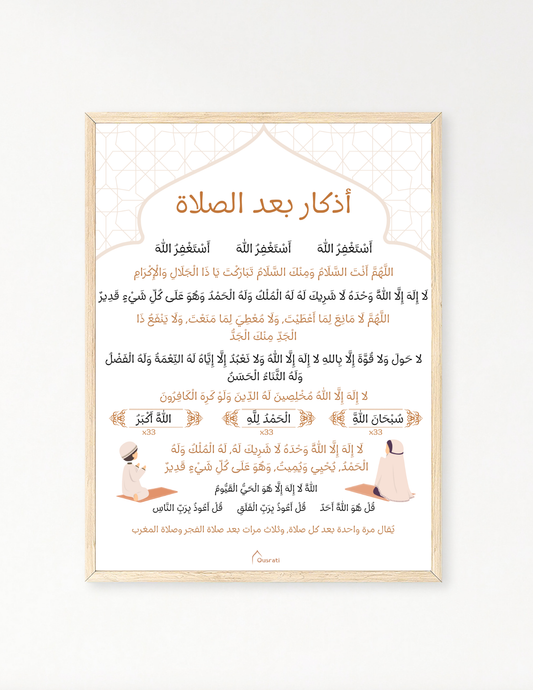 أذكار بعد الصلاة
أَسْتَغْفِرُ اللهَ أَسْتَغْفِرُ اللهَ أَسْتَغْفِرُ اللهَ
اللَّهُمَّ أَنْتَ السَّلَامُ وَمِنْكَ السَّلَامُ تَبَارَكْتَ يَا ذَا الْجَلَالِ وَالْإِكْرَامِ
لَا إِلَهَ إِلَّا اللَّهُ وَحْدَهُ لَا شَرِيكَ لَهُ لَهُ الْمُلْكُ وَلَهُ الْحَمْدُ وَهُوَ عَلَى كُلِّ شَيْءٍ قَدِيرٌ
اللَّهُمَّ لَا مَانِعَ لِمَا أَعْطَيْتَ, وَلَا مُعْطِيَ لِمَا مَنَعْتَ, وَلَا يَنْفَعُ ذَا
الْجَدِّ مِنْكَ الْجَدُّ
لا حَولَ وَلا قُوَّةَ إِلَّا بِاللهِ لا إِلَهَ إِلَّا اللَّهُ وَلا نَعْبُدُ إِلَّا إِيَّاهُ لَهُ النِّعْمَةُ وَلَهُ الْفَضْلُ
وَلَهُ الثَّنَاءُ الْحَسَنُ
لا إِلَهَ إِلَّا اللَّهُ مُخْلِصِينَ لَهُ الدِّينَ وَلَوْ كَرِهَ الْكَافِرُونَ
سُبْحَانَ اللَّهِ الْحَمْدُ لِلَّهِ اللَّهُ أَكْبَرُ
x33 x33 x33
لَا إِلَهَ إِلَّا اللَّهُ وَحْدَهُ لَا شَرِيكَ لَهُ, لَهُ الْمُلْكُ وَلَهُ
الْحَمْدُ, يُحْيِي وَيُمِيتُ, وَهُوَ عَلَى كُلِّ شَيْءٍ قَدِيرٌ
اللَّهُ لَا إِلَهَ إِلَّا هُوَ الْحَيُّ الْقَيُّومُ
قُلْ هُوَ اللَّهُ أَحَدٌ قُلْ أَعُوذُ بِرَبِّ الْفَلَقِ قُلْ أَعُوذُ بِرَبِّ النَّاسِ
يُقال مرة واحدة بعد كل صلاة, وثلاث مرات بعد صلاة الفجر وصلاة المغرب
Qusrati